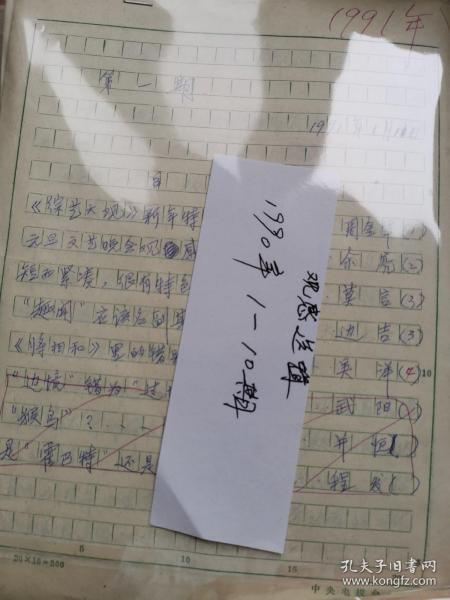 1991年
第一期
目
《综艺大观》新年特
周金华(1)
元旦文艺晚会观感
余亮(2)
短而紧凑，很有特色
莫言(3)
"趣闻"应该名副其
边吉(3)
《将相和》里的错
吴洋(4)
"边境"错为"过
武阳
"猴鸟"？...
平恒
是"霍巴特"还是
程
观感选辑
1990年1-10期
20×15=300
5
10
15
10
中央电视台
孔夫子旧书网
www.kongfz.com